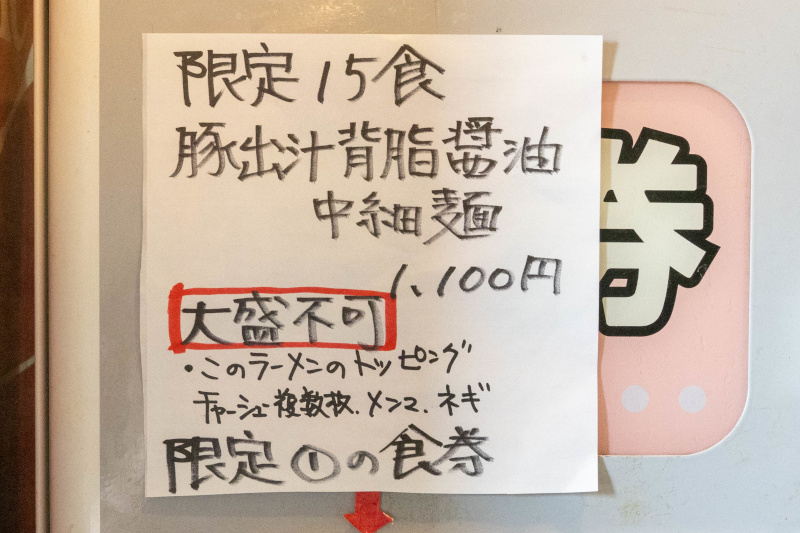 限定15食
豚出汁背脂醤油
中細麺
1,100円
大盛不可
・このラーメンのトッピング
チャーシュー複数枚、メンマ、ネギ
限定①の食券
券